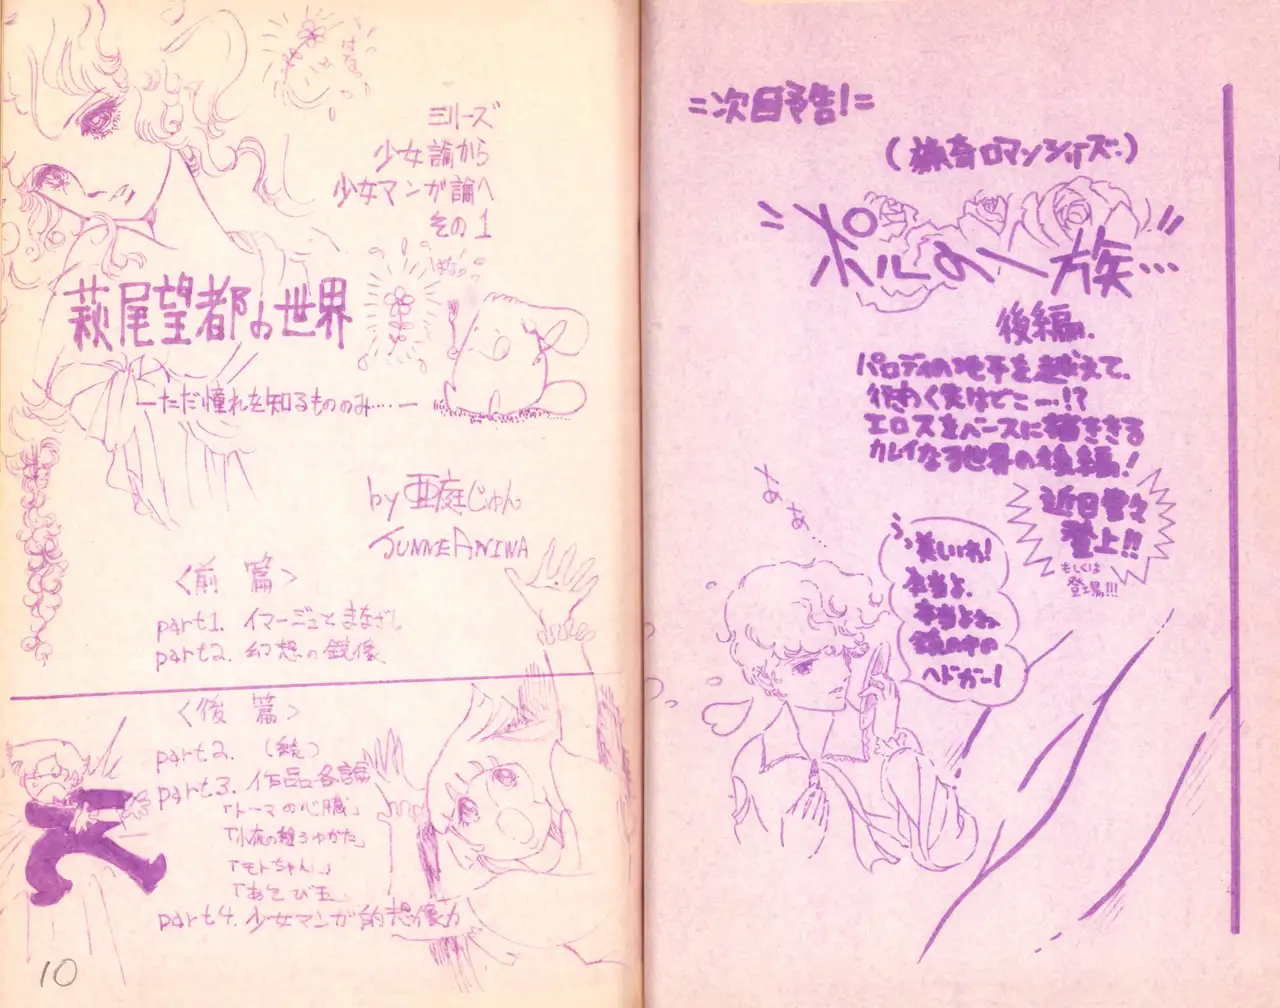 はなっ
シリーズ
少女論から
少女マンガ論へ
その1
はなっ
萩尾望都の世界
―ただ憧れを知るもののみ……―
by 亜庭じゅん
JUNNE ANIWA
<前篇>
part1. イマージュとまなざし
part2. 幻想の鏡像
<後篇>
part2. (続)
part3. 作品各論
「トーマの心臓」
「小夜の縫うゆかた」
「モトちゃん」
「あそび玉」
part4. 少女マンガ的想像力
10
=次回予告!=
(猟奇ロマンシリーズ)
ポルの一族…
後編.
パロディの地平を越えて、
行きつく先はどこ―!?
エロスをベースに描ききる
カレイなる世界の後編!
近日堂々
登上!!
もしくは
登場!!!
ああ…
うっ美しいわ!
本当よ、
本当よォ、
鏡の中の
ヘドガー!